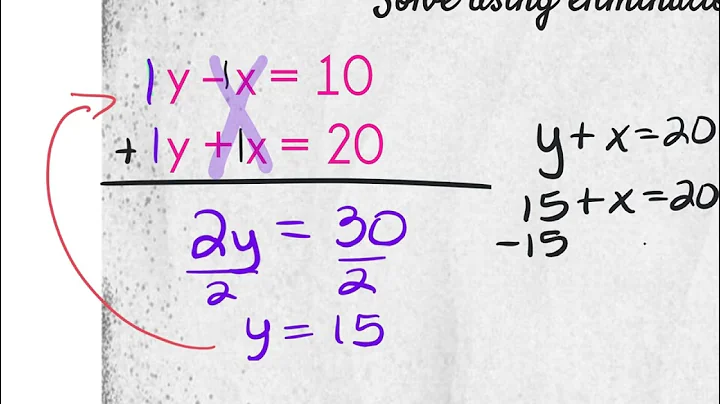 Solve using eliminatio
1y - 1x = 10
+ 1y + 1x = 20
2y = 30
2 2
y = 15
y + x = 20
15 + x = 20
-15